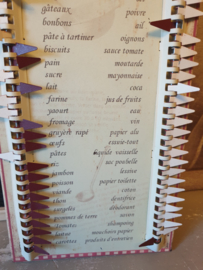 gâteaux
poivre
bonbons
ail
pâte à tartiner
oignons
biscuits
sauce tomate
pain
moutarde
sucre
mayonnaise
lait
coca
farine
jus de fruits
yaourt
eau
fromage
vin
gruyère rapé
papier alu
œufs
essuie-tout
pâtes
liquide vaisselle
riz
sac poubelle
jambon
lessive
poisson
papier toilette
viande
coton
thon
dentifrice
déodorant
pommes de terre
savon
tomates
shampoing
mouchoirs papier
carottes
produits d'entretien